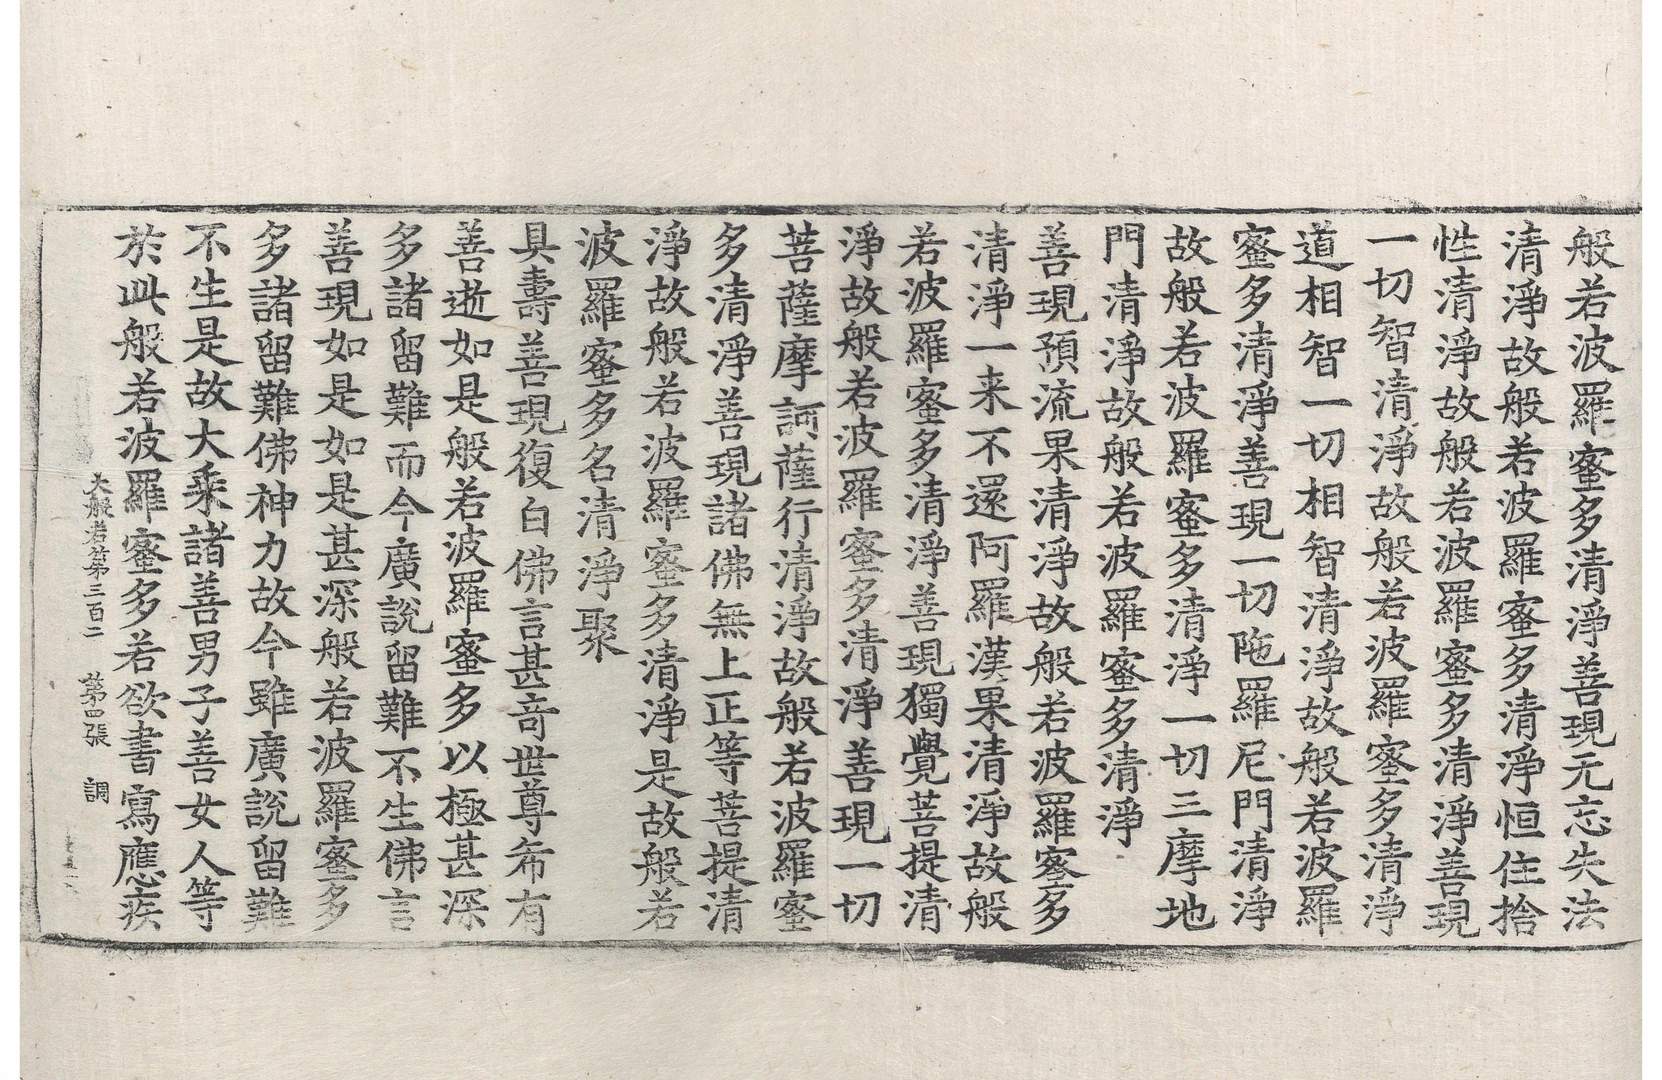 般若波羅蜜多清淨善現无忘失法
清淨故般若波羅蜜多清淨恒住捨
性清淨故般若波羅蜜多清淨善現
一切智清淨故般若波羅蜜多清淨
道相智一切相智清淨故般若波羅
蜜多清淨善現一切陁羅尼門清淨
故般若波羅蜜多清淨一切三摩地
門清淨故般若波羅蜜多清淨
善現預流果清淨故般若波羅蜜多
清淨一来不還阿羅漢果清淨故般
若波羅蜜多清淨善現獨覺菩提清
淨故般若波羅蜜多清淨善現一切
菩薩摩訶薩行清淨故般若波羅蜜
多清淨善現諸佛無上正等菩提清
淨故般若波羅蜜多清淨是故般若
波羅蜜多名清淨聚
具壽善現復白佛言甚奇世尊希有
善逝如是般若波羅蜜多以極甚深
多諸留難而今廣說留難不生佛言
善現如是如是甚深般若波羅蜜多
多諸留難佛神力故今雖廣說留難
不生是故大乘諸善男子善女人等
於此般若波羅蜜多若欲書寫應疾
大般若第三百二 第四張 調